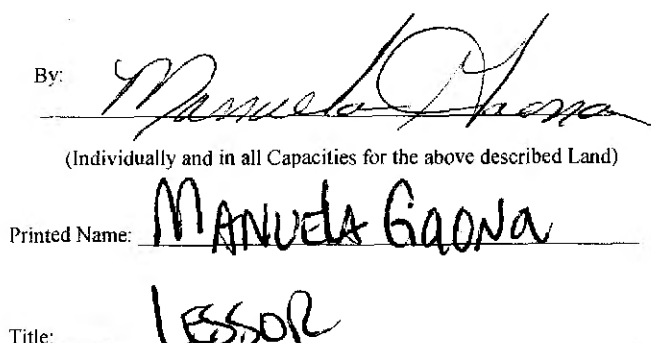 By: Manuela Gaona
(Individually and in all Capacities for the above described Land)
Printed Name: MANUELA GAONA
Title: LESSOR